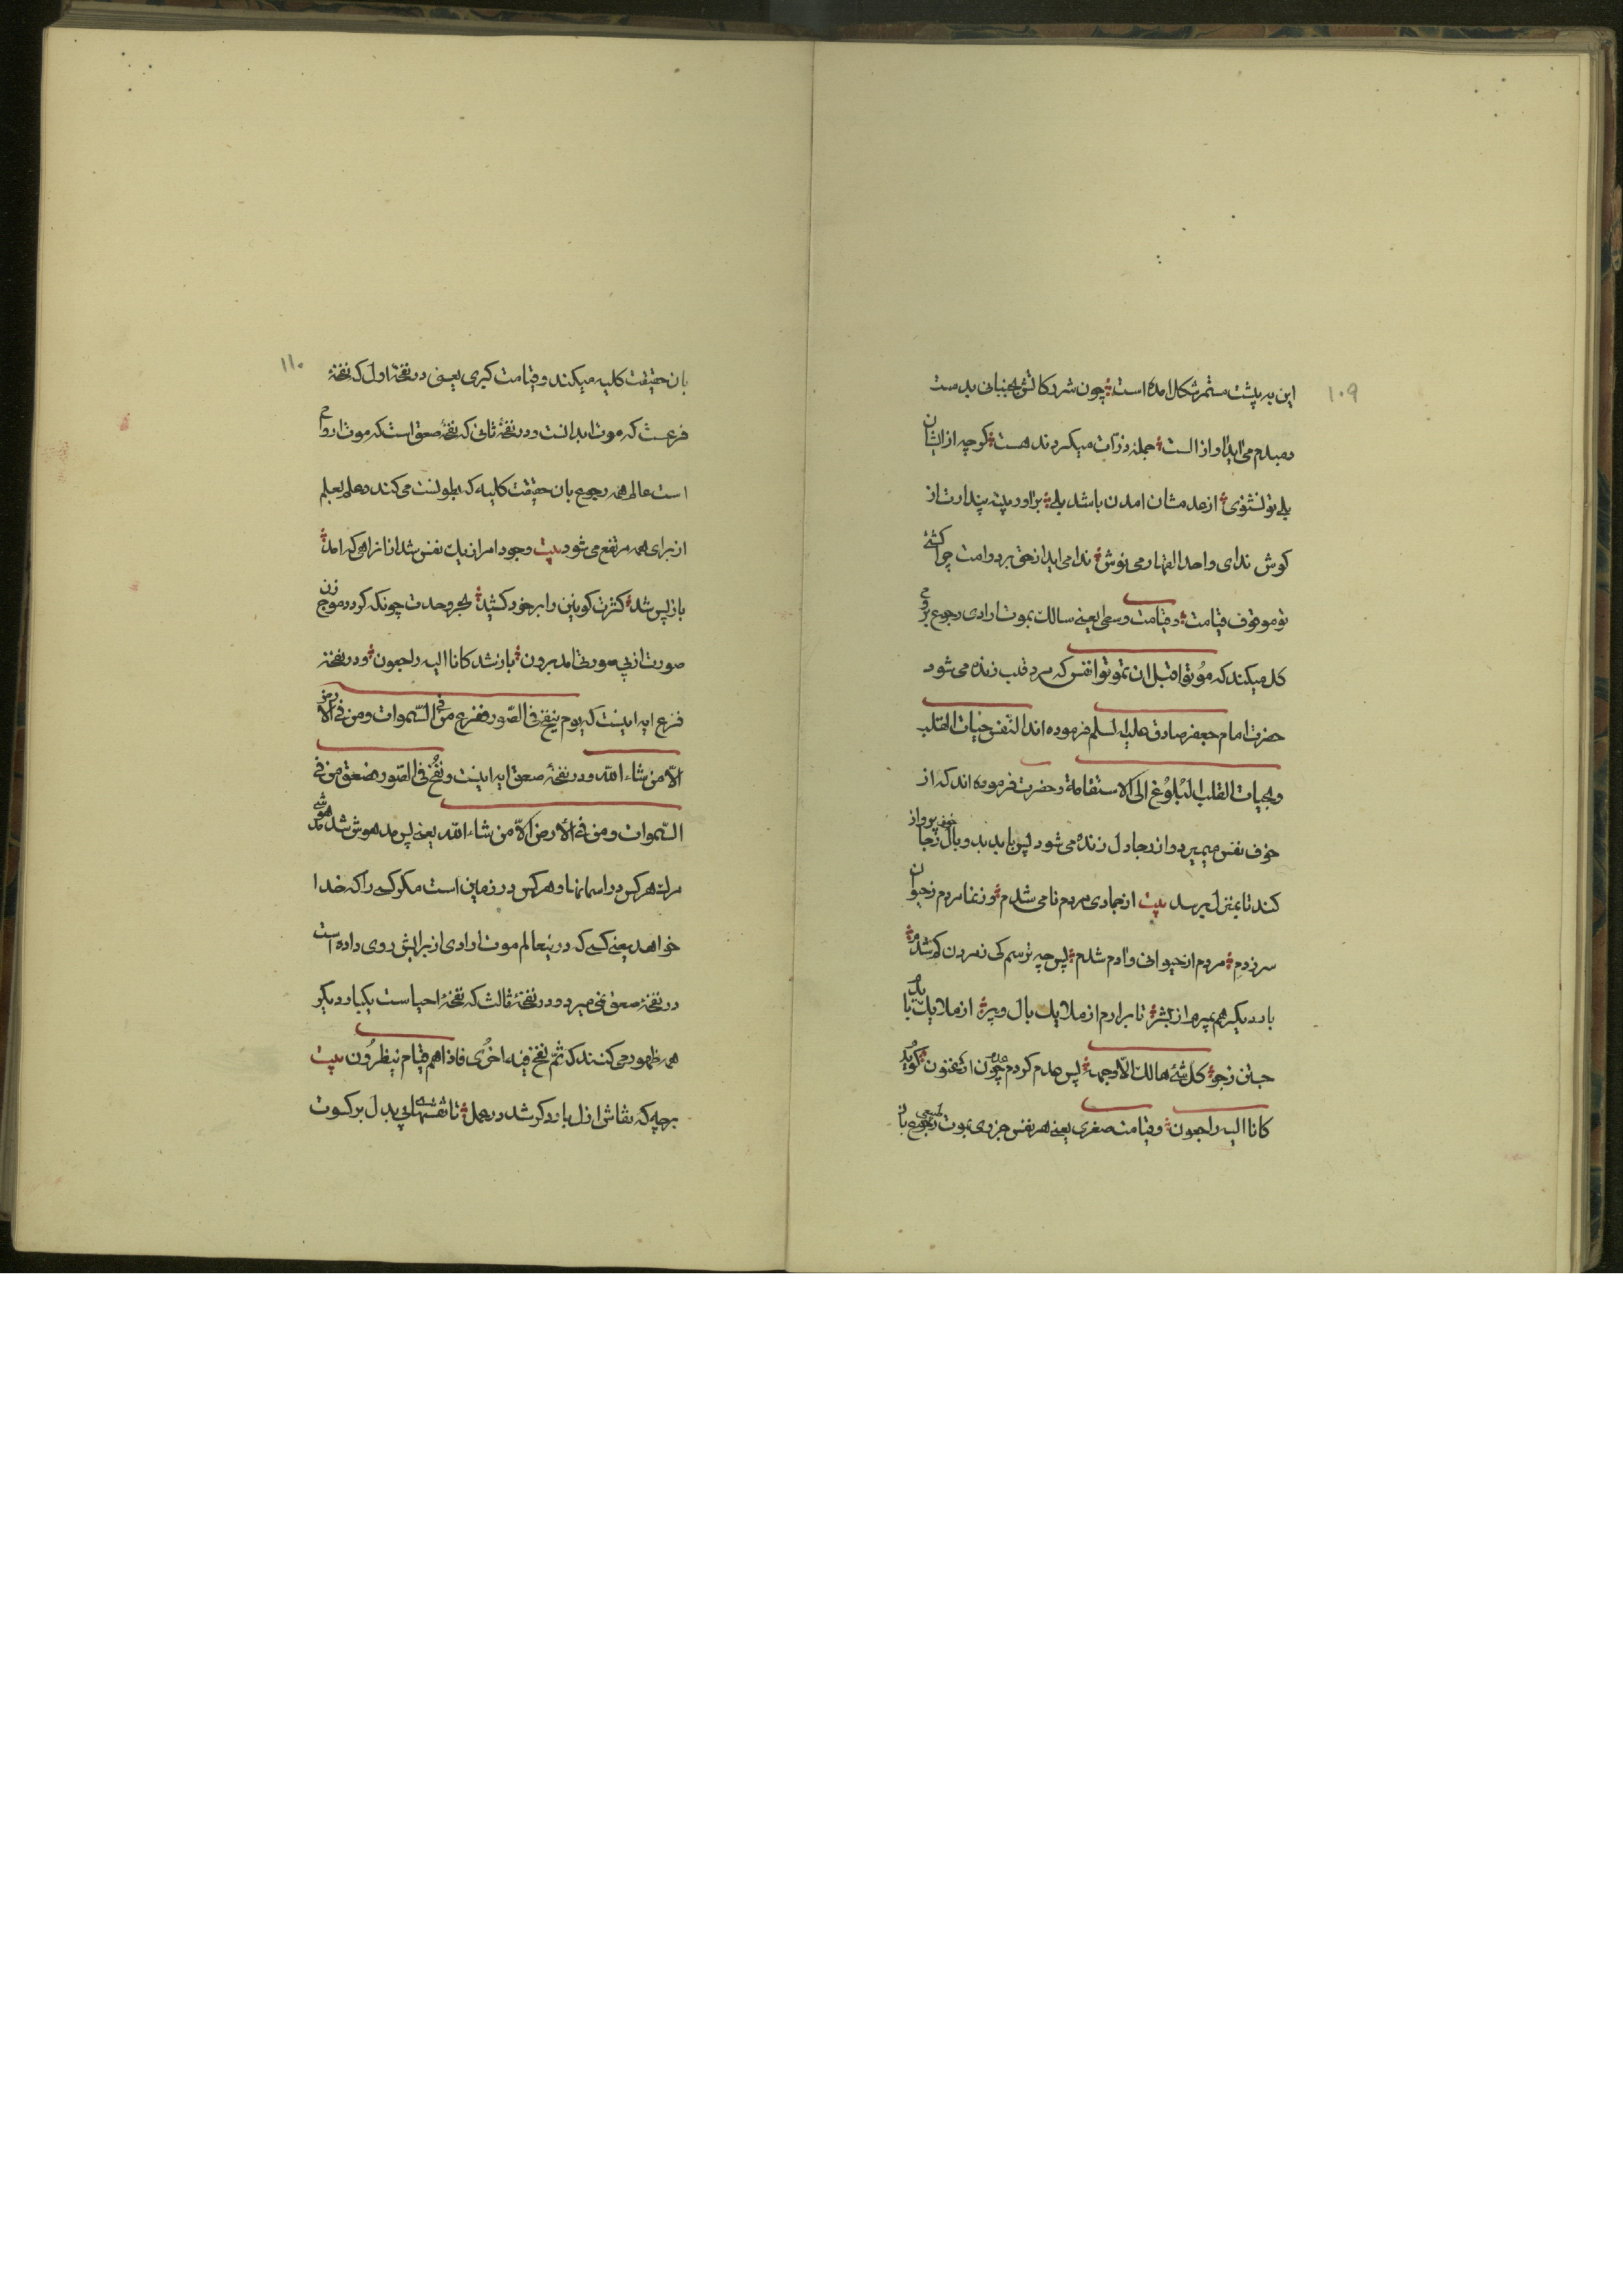 ۱۰۹
این به پشت مستمر شکل امده است چون شرر کاتش بجنبانی بدست
دمبدم می‌اید اواز الست جمله ذرات میکردند هست کوچه از ایشان
بلی تو نشنوی از عدمشان امدن باشد بلی بر اور پنبه پندارت از
کوش ندای واحد القهار می نوش ندا می اید از حق بر دوامت چرا کشتی
تو موقوف قیامت وقیامت وسطی یعنی سالک بموت ارادی رجوع بروح
کل میکند که موتوا قبل ان تموتوا نفس که مرد قلب زنده می شود
حضرت امام جعفر صادق علیه السلم فرموده اند النفس حیات القلب
وبحیات القلب البلوغ الی الاستقامة وحضرت فرموده اند که از
خوف نفس میمیرد و از رجا دل زنده می شود پس باید بدو بال رجا خوف پرواز
کند تا بمنزل برسد بیت از جمادی مردم نامی شدم وز نما مردم ز حیوان
سر زدم مردم از حیوانی وادم شدم پس چه ترسم کی ز مردن کم شدم
بار دیکر هم بمیرم از بشر تا برارم از ملایك بال و پر از ملایك بایدم
جستن ز جو کل شئ هالك الا وجهه پس عدم کردم عدم چون ارغنون کویدم
کانا الیه راجعون وقیامت صغری یعنی هر نفس جزوی بموت طبیعی رجوع بان
۱۱۰
بان حقیقت کلیه میکند وقیامت کبری یعنی در نفخهٔ اول که نفخهٔ
فزعست که موت ابدانست ودر نفخهٔ ثانی که نفخهٔ صعق است که موت ارواح
است عالم همه رجوع بان حقیقت کلیه که بطونست می کنند وعلم بعلم
از برای همه مرتفع می شود بیت وجود امر از یك نفس شد از انراهی که امد
باز پس شد کثرت کونین را بر خود کشید بحر وحدت چونکه کردد موج زن
صورت از بی صورتی امد برون باز شد کانا الیه راجعون ودر نفخهٔ
فزع ایه اینست که یوم ینفخ فی الصور ففزع من فی السموات ومن فی الارض
الا من شاء الله ودر نفخهٔ صعق ایه اینست ونفخ فی الصور فصعق من فی
السموات ومن فی الارض الا من شاء الله یعنی پس مدهوش شد مدهوشی
مرك هر کس در اسمانها وهر کس در زمین است مکر کسی را که خدا
خواهد یعنی کسی که در ینعالم موت ارادی از برایش روی داده است
در نفخهٔ صعق نمی میرد ودر نفخهٔ ثالث که نفخهٔ احیاست یکبار دیکر
همه ظهور می کنند که ثم نفخ فیه اخری فاذا هم قیام ینظرون بیت
هر چه که نقاش ازل بار دکر شد در عمل تا نقشهای بی بدل بر کسوت